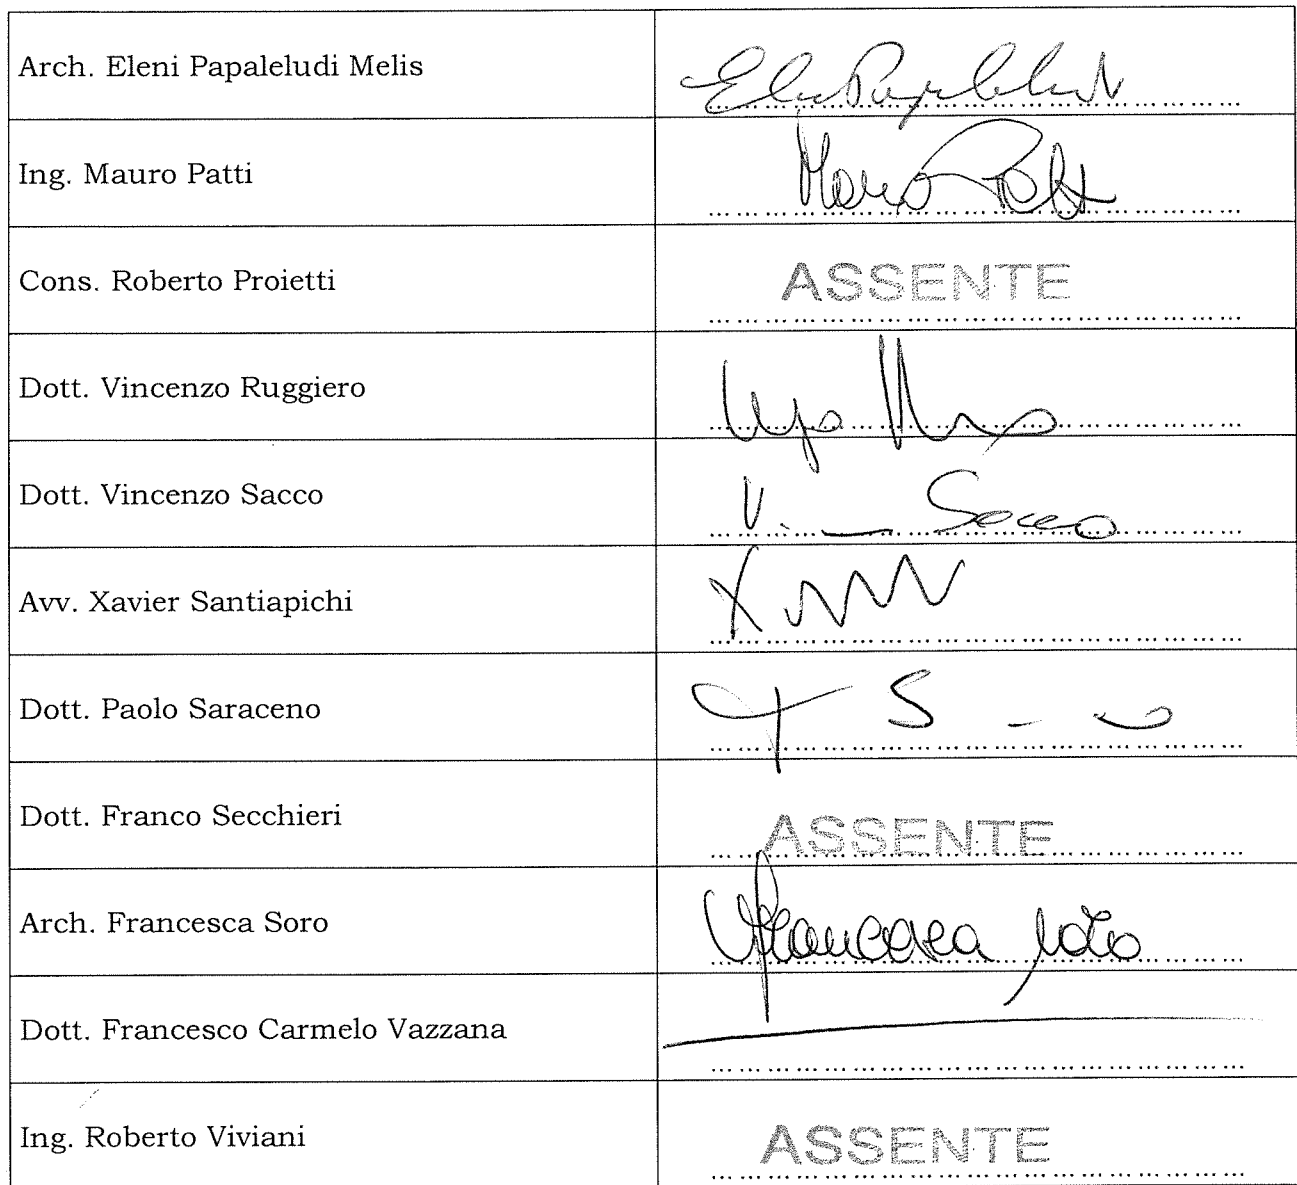 Arch. Eleni Papaleludi Melis
Ing. Mauro Patti
Mauro Patti
Cons. Roberto Proietti
ASSENTE
Dott. Vincenzo Ruggiero
Dott. Vincenzo Sacco
V. Sacco
Avv. Xavier Santiapichi
Dott. Paolo Saraceno
Dott. Franco Secchieri
ASSENTE
Arch. Francesca Soro
Francesca Soro
Dott. Francesco Carmelo Vazzana
Ing. Roberto Viviani
ASSENTE